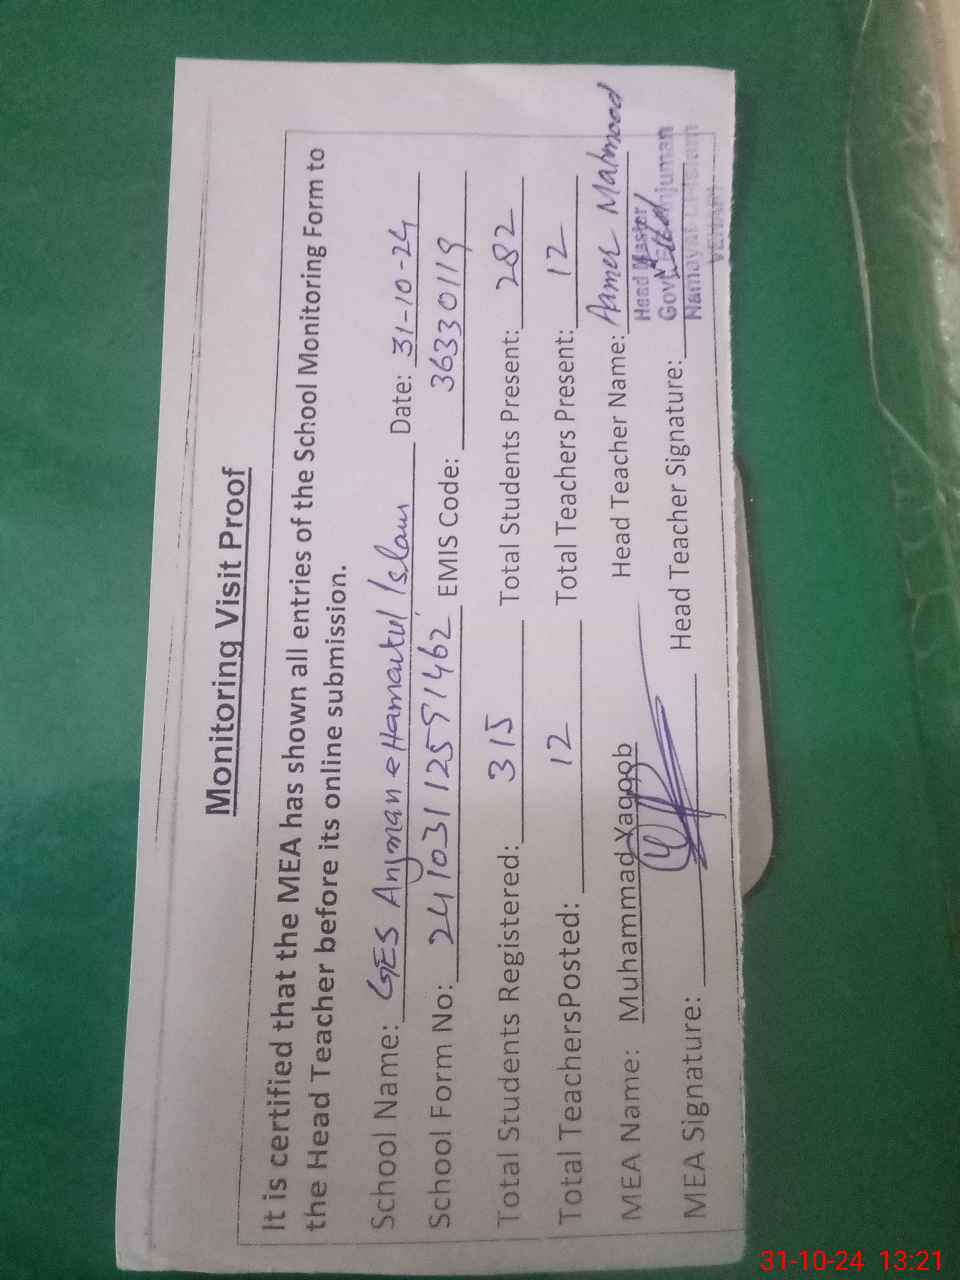 Monitoring Visit Proof
It is certified that the MEA has shown all entries of the School Monitoring Form to
the Head Teacher before its online submission.
School Name: GES Anjman e Hamaitul Islam Date: 31-10-24
School Form No: 24103112591462 EMIS Code: 36330119
Total Students Registered: 315 Total Students Present: 282
Total TeachersPosted: 12 Total Teachers Present: 12
MEA Name: Muhammad Yaqoob Head Teacher Name: Aamer Mahmood
MEA Signature: Head Teacher Signature:
Head Master
Govt. Anjuman
31-10-24 13:21